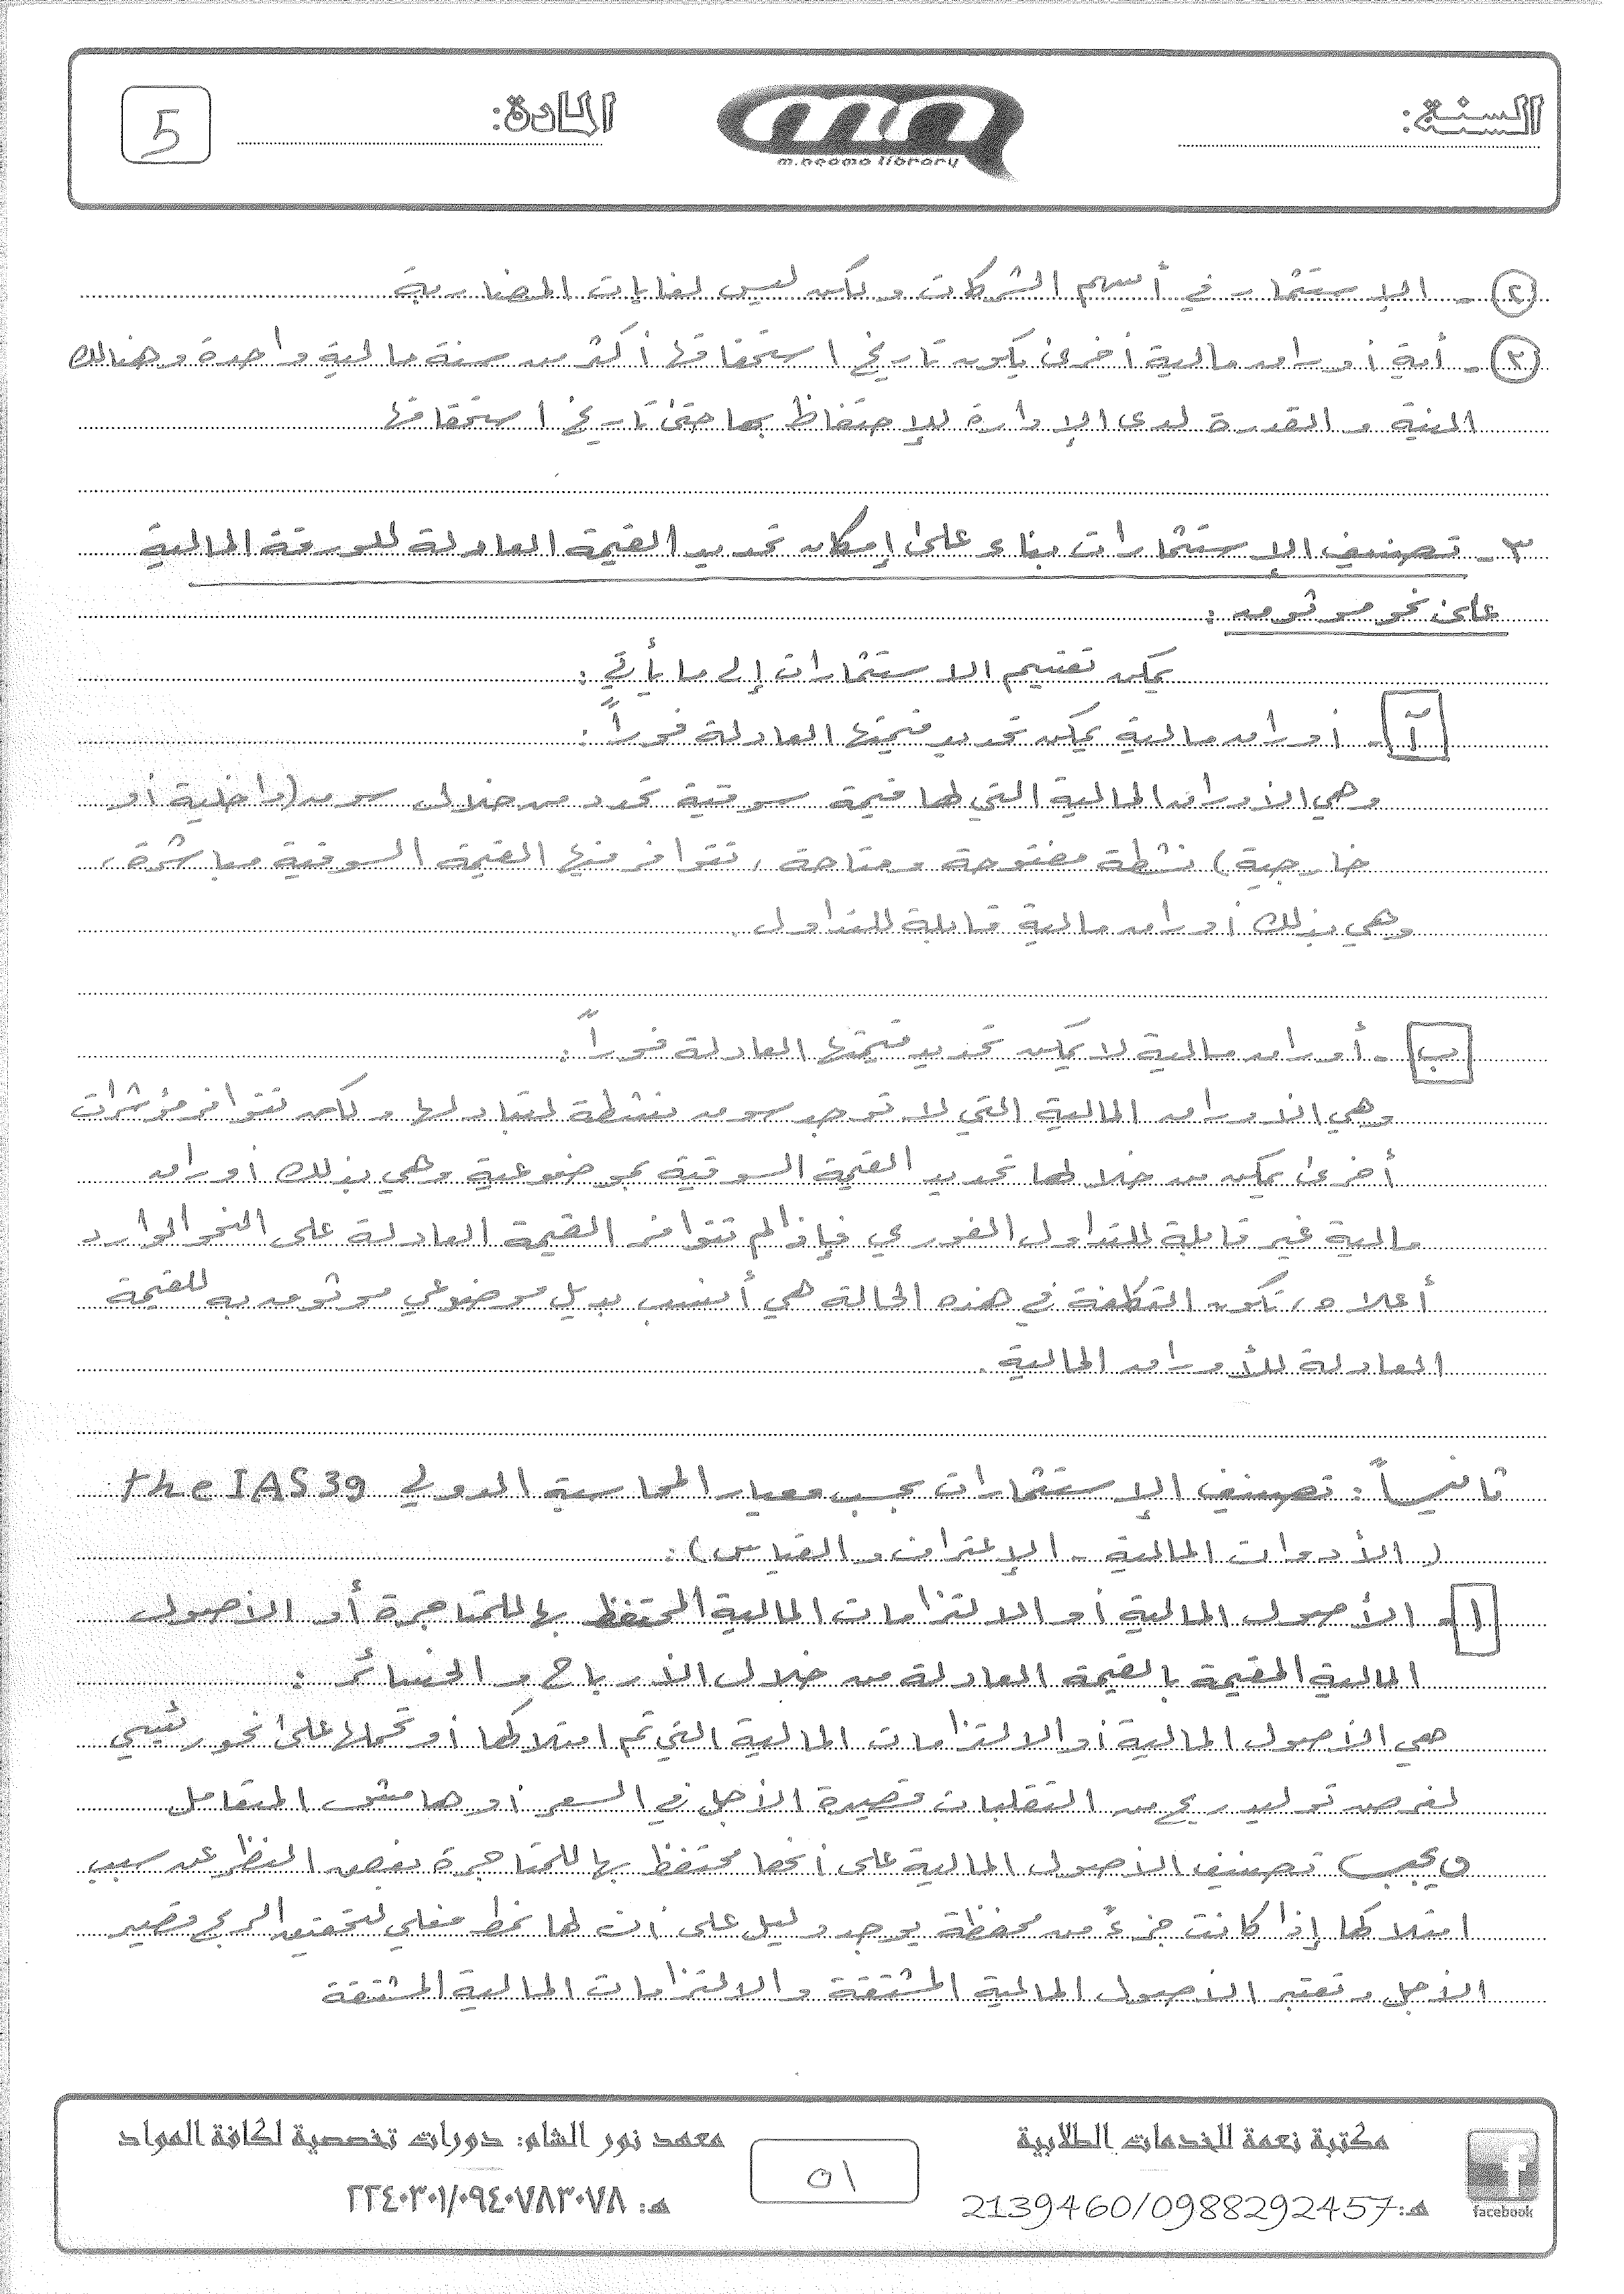 السنة:
m.neama library
المادة:
5
٢- الإستثمار في أسهم الشركات ولكن ليس لغايات المضاربة
٣- أية أوراق مالية أخرى يكون تاريخ استحقاقها أكثر من سنة مالية واحدة وهنالك
النية والقدرة لدى الإدارة للإحتفاظ بها حتى تاريخ استحقاقها
٣- تصنيف الإستثمارات بناء على إمكان تحديد القيمة العادلة للورقة المالية
على نحو موثوق :
يمكن تقسيم الاستثمارات إلى ما يأتي :
آ- أوراق مالية يمكن تحديد قيمتها العادلة فوراً :
وهي الأوراق المالية التي لها قيمة سوقية تحدد من خلال سوق (داخلية أو
خارجية) نشطة مفتوحة ومتاحة ، تتوافر فيها القيمة السوقية مباشرة ،
وهي بذلك أوراق مالية قابلة للتداول .
ب- أوراق مالية لا يمكن تحديد قيمتها العادلة فوراً :
وهي الأوراق المالية التي لا توجد سوق نشطة لتبادلها ولكن تتوافر مؤشرات
أخرى يمكن من خلالها تحديد القيمة السوقية بموضوعية وهي بذلك أوراق
مالية غير قابلة للتداول الفوري فإذا لم تتوافر القيمة العادلة على النحو الوارد
أعلاه ، تكون التكلفة في هذه الحالة هي أنسب بديل موضوعي موثوق به للقيمة
العادلة للأوراق المالية .
ثانياً : تصنيف الإستثمارات بحسب معيار المحاسبة الدولي the IAS 39
( الأدوات المالية - الإعتراف والقياس ) :
١- الأصول المالية أو الالتزامات المالية المحتفظ بها للمتاجرة أو الأصول
المالية المقيمة بالقيمة العادلة من خلال الأرباح والخسائر :
هي الأصول المالية أو الالتزامات المالية التي تم امتلاكها أو تحملها على نحو رئيسي
لغرض توليد ربح من التقلبات قصيرة الأجل في السعر أو هامش المتعامل
ويجب تصنيف الأصول المالية على أنها محتفظ بها للمتاجرة بغض النظر عن سبب
امتلاكها إذا كانت جزءً من محفظة يوجد دليل على أن لها نمط فعلي لتحقيق الربح قصير
الأجل وتعتبر الأصول المالية المشتقة والالتزامات المالية المشتقة
مكتبة نعمة للخدمات الطلابية
هـ: 2139460/0988292457
facebook
٥١
معهد نور الشام: دورات تخصصية لكافة المواد
هـ: ٢٢٤٠٣٠١/٠٩٤٠٧٨٣٠٧٨